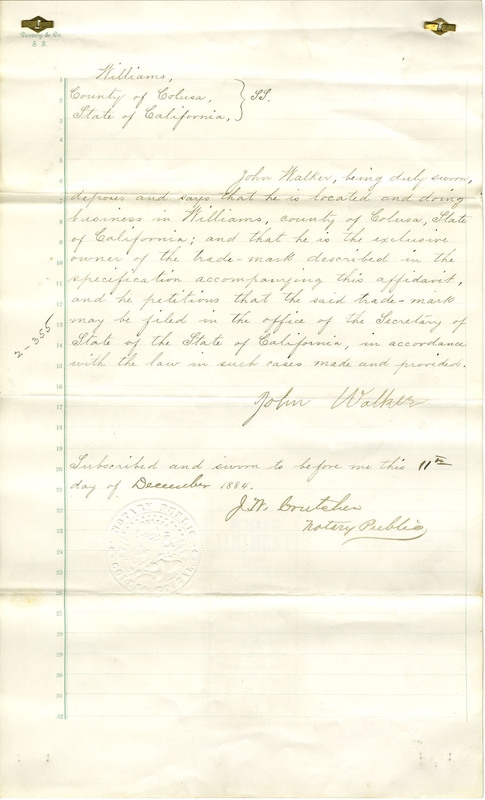 Dewey & Co.
S. F.
Williams,
County of Colusa, } SS.
State of California,
John Walker, being duly sworn,
deposes and says that he is located and doing
business in Williams, county of Colusa, State
of California; and that he is the exclusive
owner of the trade-mark described in the
specification accompanying this affidavit,
and he petitions that the said trade-mark
may be filed in the office of the Secretary of
State of the State of California, in accordance
with the law in such cases made and provided.
2-355
John Walker
Subscribed and sworn to before me this 11th
day of December 1884.
J. W. Crutcher
Notary Public
NOTARY PUBLIC
1
2
3
4
5
6
7
8
9
10
11
12
13
14
15
16
17
18
19
20
21
22
23
24
25
26
27
28
29
30
31
32